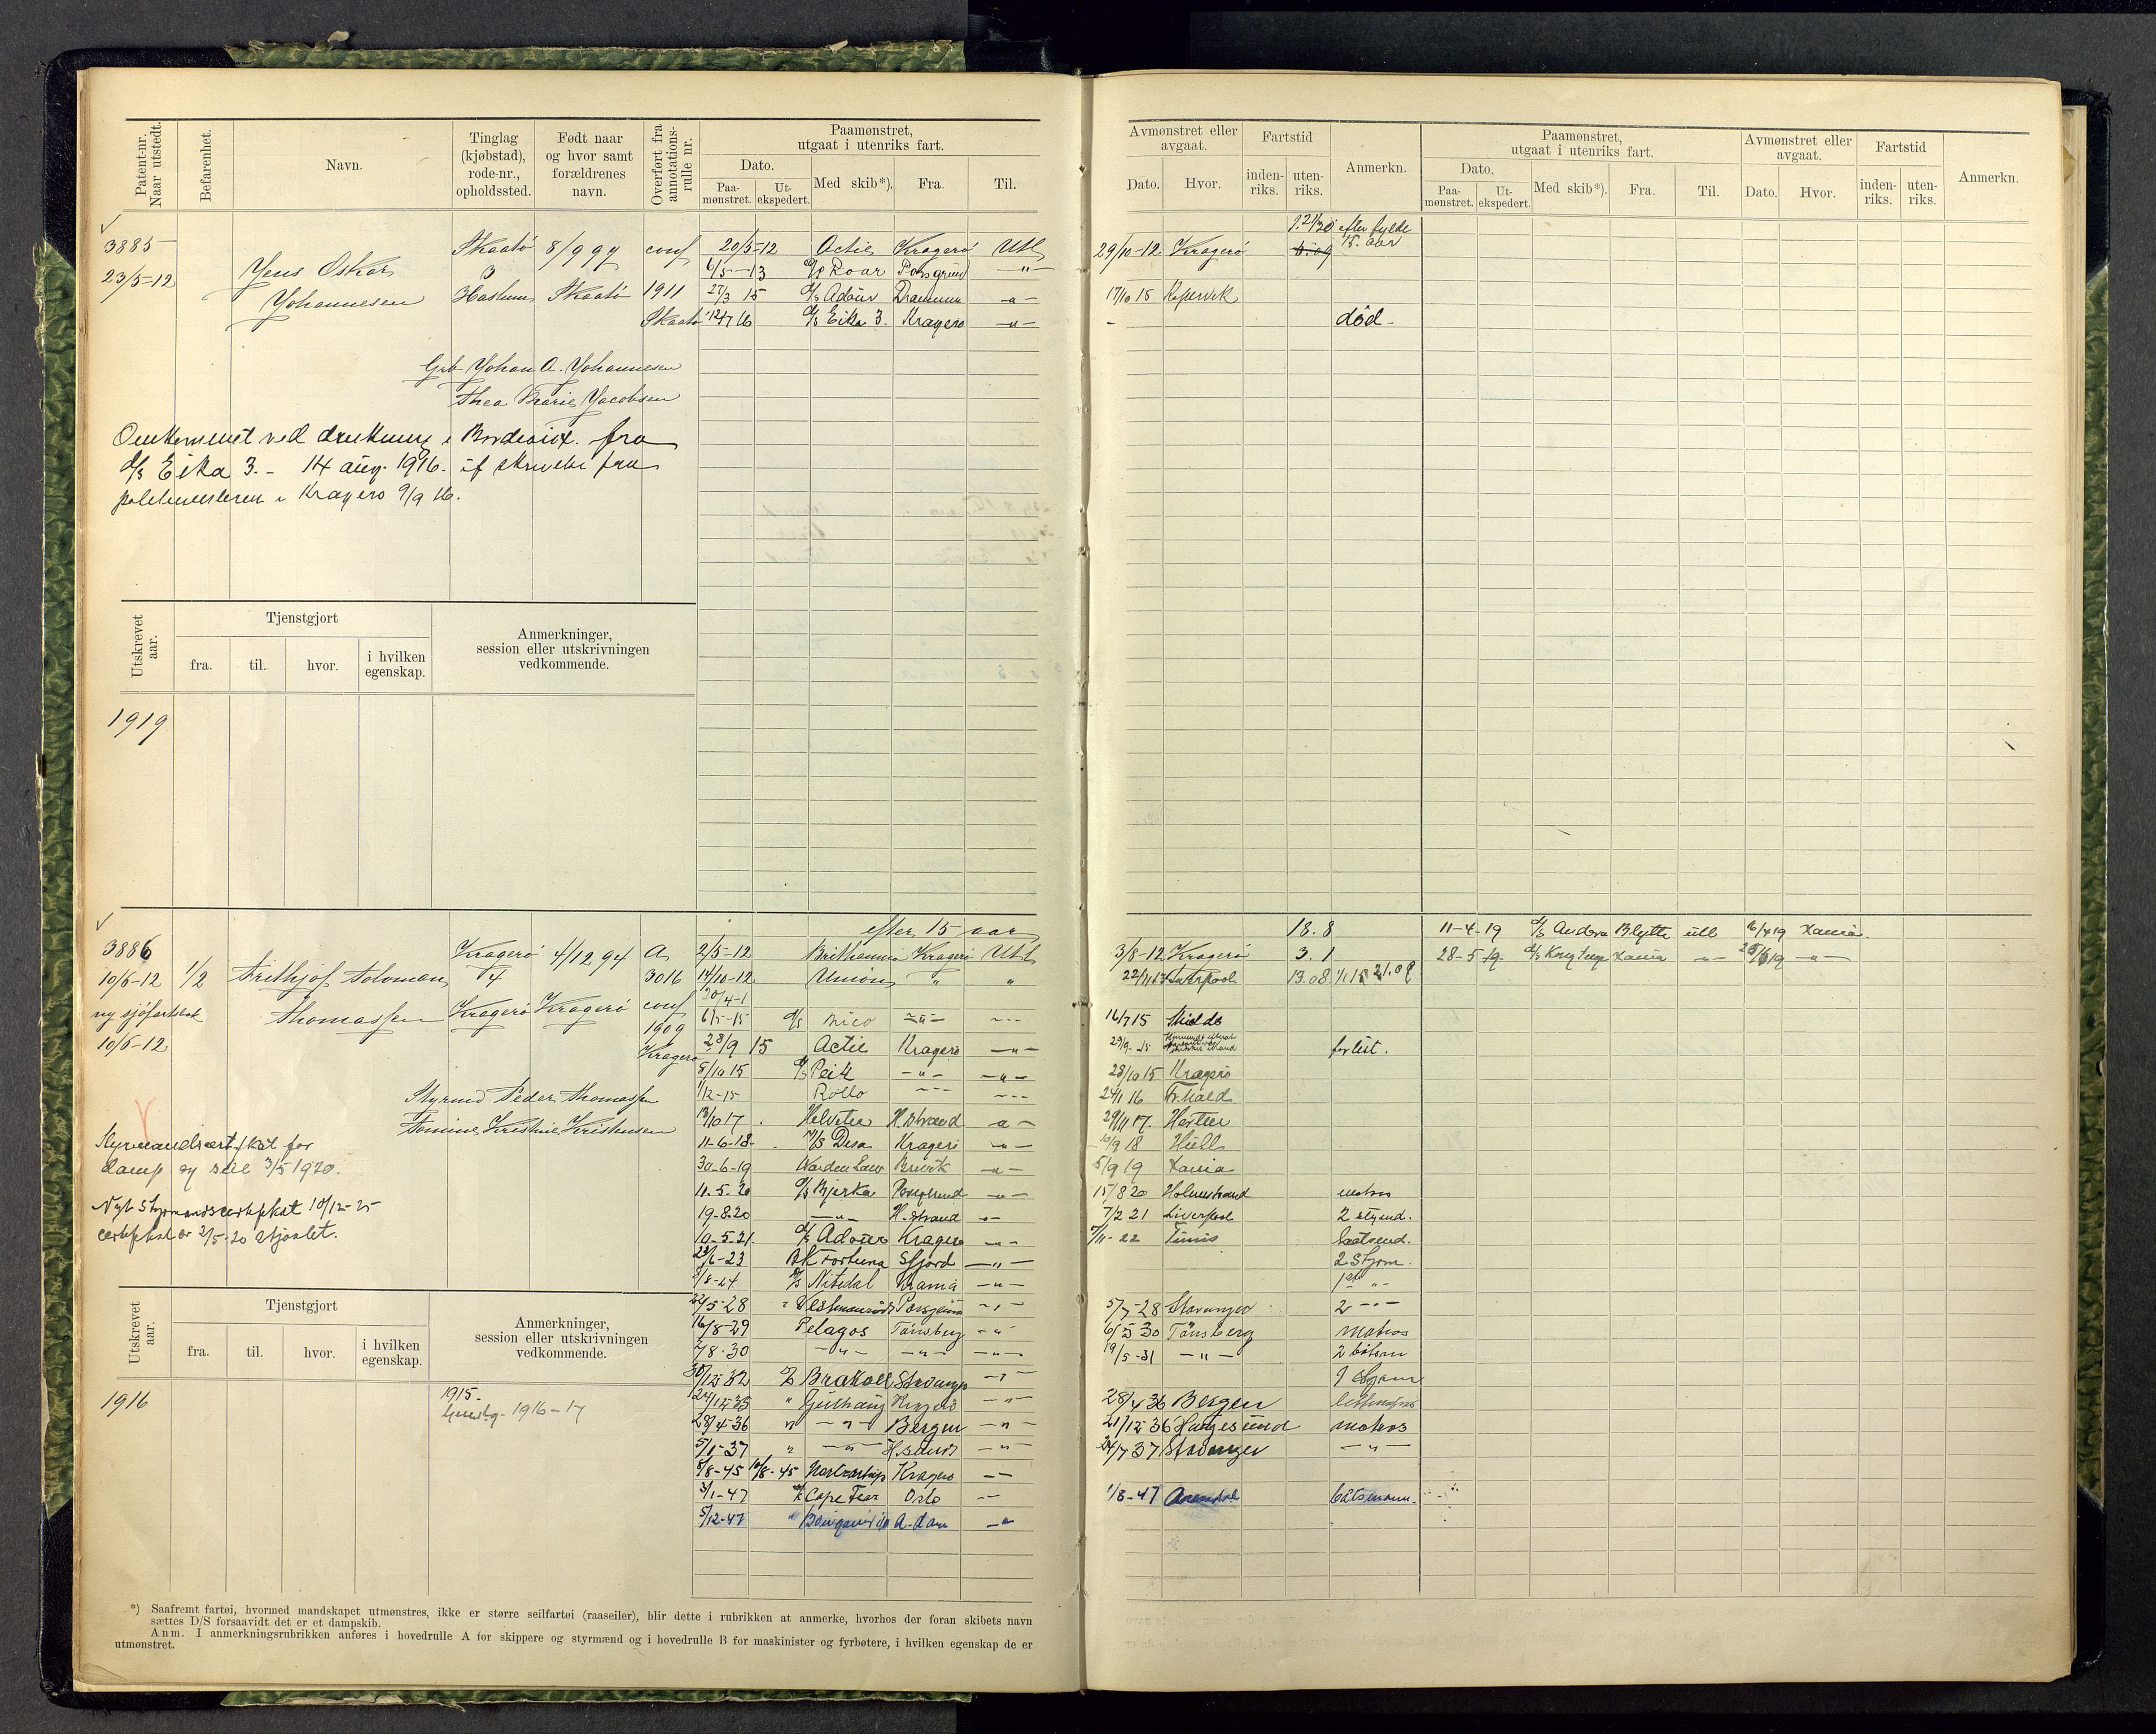 Patent-nr. Naar utstedt.
Befarenhet.
Navn.
Tinglag (kjøbstad), rode-nr., opholdssted.
Født naar og hvor samt forældrenes navn.
Overført fra annotations-rulle nr.
Paamønstret, utgaat i utenriks fart.
Dato.
Paa-mønstret.
Ut-ekspedert.
Med skib*).
Fra.
Til.
Avmønstret eller avgaat.
Dato.
Hvor.
Fartstid
inden-riks.
uten-riks.
Anmerkn.
Paamønstret, utgaat i utenriks fart.
Dato.
Paa-mønstret.
Ut-ekspedert.
Med skib*).
Fra.
Til.
Avmønstret eller avgaat.
Dato.
Hvor.
Fartstid
inden-riks.
uten-riks.
Anmerkn.
efter fylte
15. aar
3885
23/5-12
Jens Oskar
Johannesen
Skaatø
3
Haslum
8/9 97
Skaatø
conf
1911
Skaatø
20/5-12 Actie Kragerø Utl
6/5-13 Roar Porsgrund -"-
27/3 15 d/s Adour Drammen -"-
12/7 16 d/s Eika 3. Kragerø -"-
29/10-12 Kragerø
17/10 15 Kopervik
død
Grb Johan A. Johannesen
Thea Marie Jacobsen
Omkommet ved drukning i Bordeaux. fra
d/s Eika 3. - 14 aug. 1916. if skrivelse fra
politimesteren i Kragerø 9/9 16.
Utskrevet aar.
Tjenstgjort
fra.
til.
hvor.
i hvilken egenskap.
Anmerkninger, session eller utskrivningen vedkommende.
1919
efter 15 aar
18.8
3886
10/6-12 1/2
ny sjøfartsbok
10/6-12
Frithjof Solomon
Thomassen
Kragerø
T4
Kragerø
4/12 94
Kragerø
A
3016
conf
1909
Kragerø
Styrmd Peder Thomassen
Tomine Kristine Kristensen
Styrmandscertifikat for
damp og seil 3/5 1920.
Nyt Styrmandscertifikat 10/12-25
certifikat av 3/5-20 stjaalet.
2/5-12 Brithannia Kragerø Utl
14/10-12 Union " "
6/5-15 d/s Nico -"-
28/9 15 Actie Kragerø -"-
5/10 15 d/s Peik -"- -"-
1/12-15 Rollo
13/10 17 Helvetia H.strand -"-
11-6-18 Desa Kragerø -"-
30-6-19 Brevik -"-
11-5-20 d/s Bjerka Porsgrund -"-
19-8-20 -"- H.strand -"-
10-5-21 d/s Adour Kragerø -"-
23/6-23 BK Fortuna Sfjord -"-
8/8-24 d/s Nitedal Krania -"-
22/5-28 Porsgrunn -"-
16/8-29 Pelagos Tønsberg -"-
7/8-30 -"- -"- -"-
30/12-32 Brakoll Stavanger -"-
24/12-35 " Gulhaug Kragerø -"-
28/4-36 " -"- Bergen -"-
5/1-37 " -"- H.sund -"-
8/8-45 10/8-45 Kragerø
3/1-47 Cape Fear Oslo
5/12-47 " A-dam -"-
3/8-12 Kragerø 3.1
22/11 13 Liverpool 13.08 1/1 15 21.08
16/7 15 Skields
29/9-15 forlist.
28/10 15 Kragerø
24/1 16 Fr.hald
29/11 17 Hestur
10/9 18 Hull
5/9 19 Xania
15/8 20 Holmestrand matros
7/2 21 Liverpool 2 styrmd.
7/11-22 Tunis baatsmd.
2 Styrm.
1ste -"-
5/7-28 Stavanger 2 -"-
6/5 30 Tønsberg matros
19/5-31 -"- 2 båtsm
1 styrm
28/4 36 Bergen lettmatros
21/12 36 Haugesund matros
24/7 37 Stavanger -"-
1/8-47 Arendal båtsmann.
11-4-19 d/s Andora Blytte utl 16/4 19 Xania.
28-5-19 Xania -"- -"-
Utskrevet aar.
Tjenstgjort
fra.
til.
hvor.
i hvilken egenskap.
Anmerkninger, session eller utskrivningen vedkommende.
1916
1915.
1916-17
*) Saafremt fartøi, hvormed mandskapet utmønstres, ikke er større seilfartøi (raaseiler), blir dette i rubrikken at anmerke, hvorhos der foran skibets navn
sættes D/S forsaavidt det er et dampskib.
Anm. I anmerkningsrubrikken anføres i hovedrulle A for skippere og styrmænd og i hovedrulle B for maskinister og fyrbøtere, i hvilken egenskap de er
utmønstret.